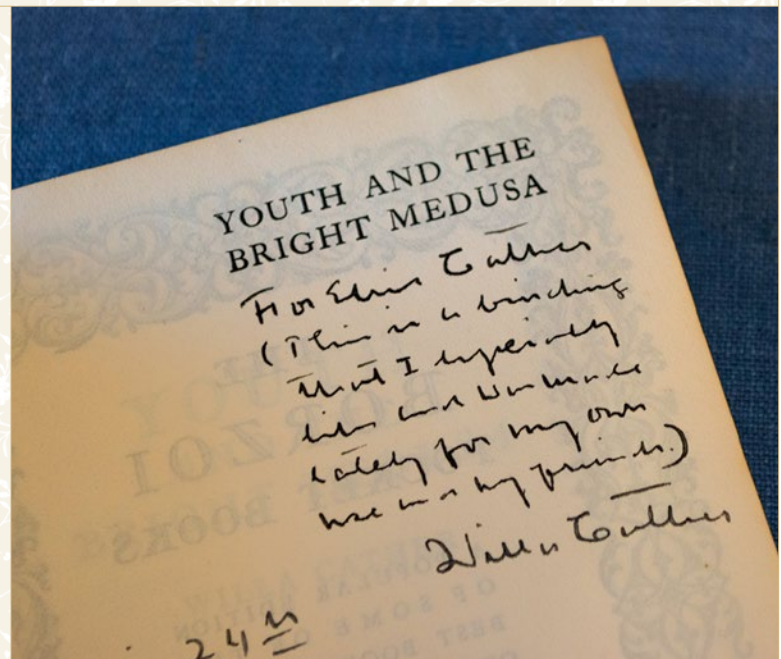 YOUTH AND THE
BRIGHT MEDUSA
For Elsie Cather
(This is a binding
that I especially
like and was made
for my own
use my friends.)
Willa Cather
24th